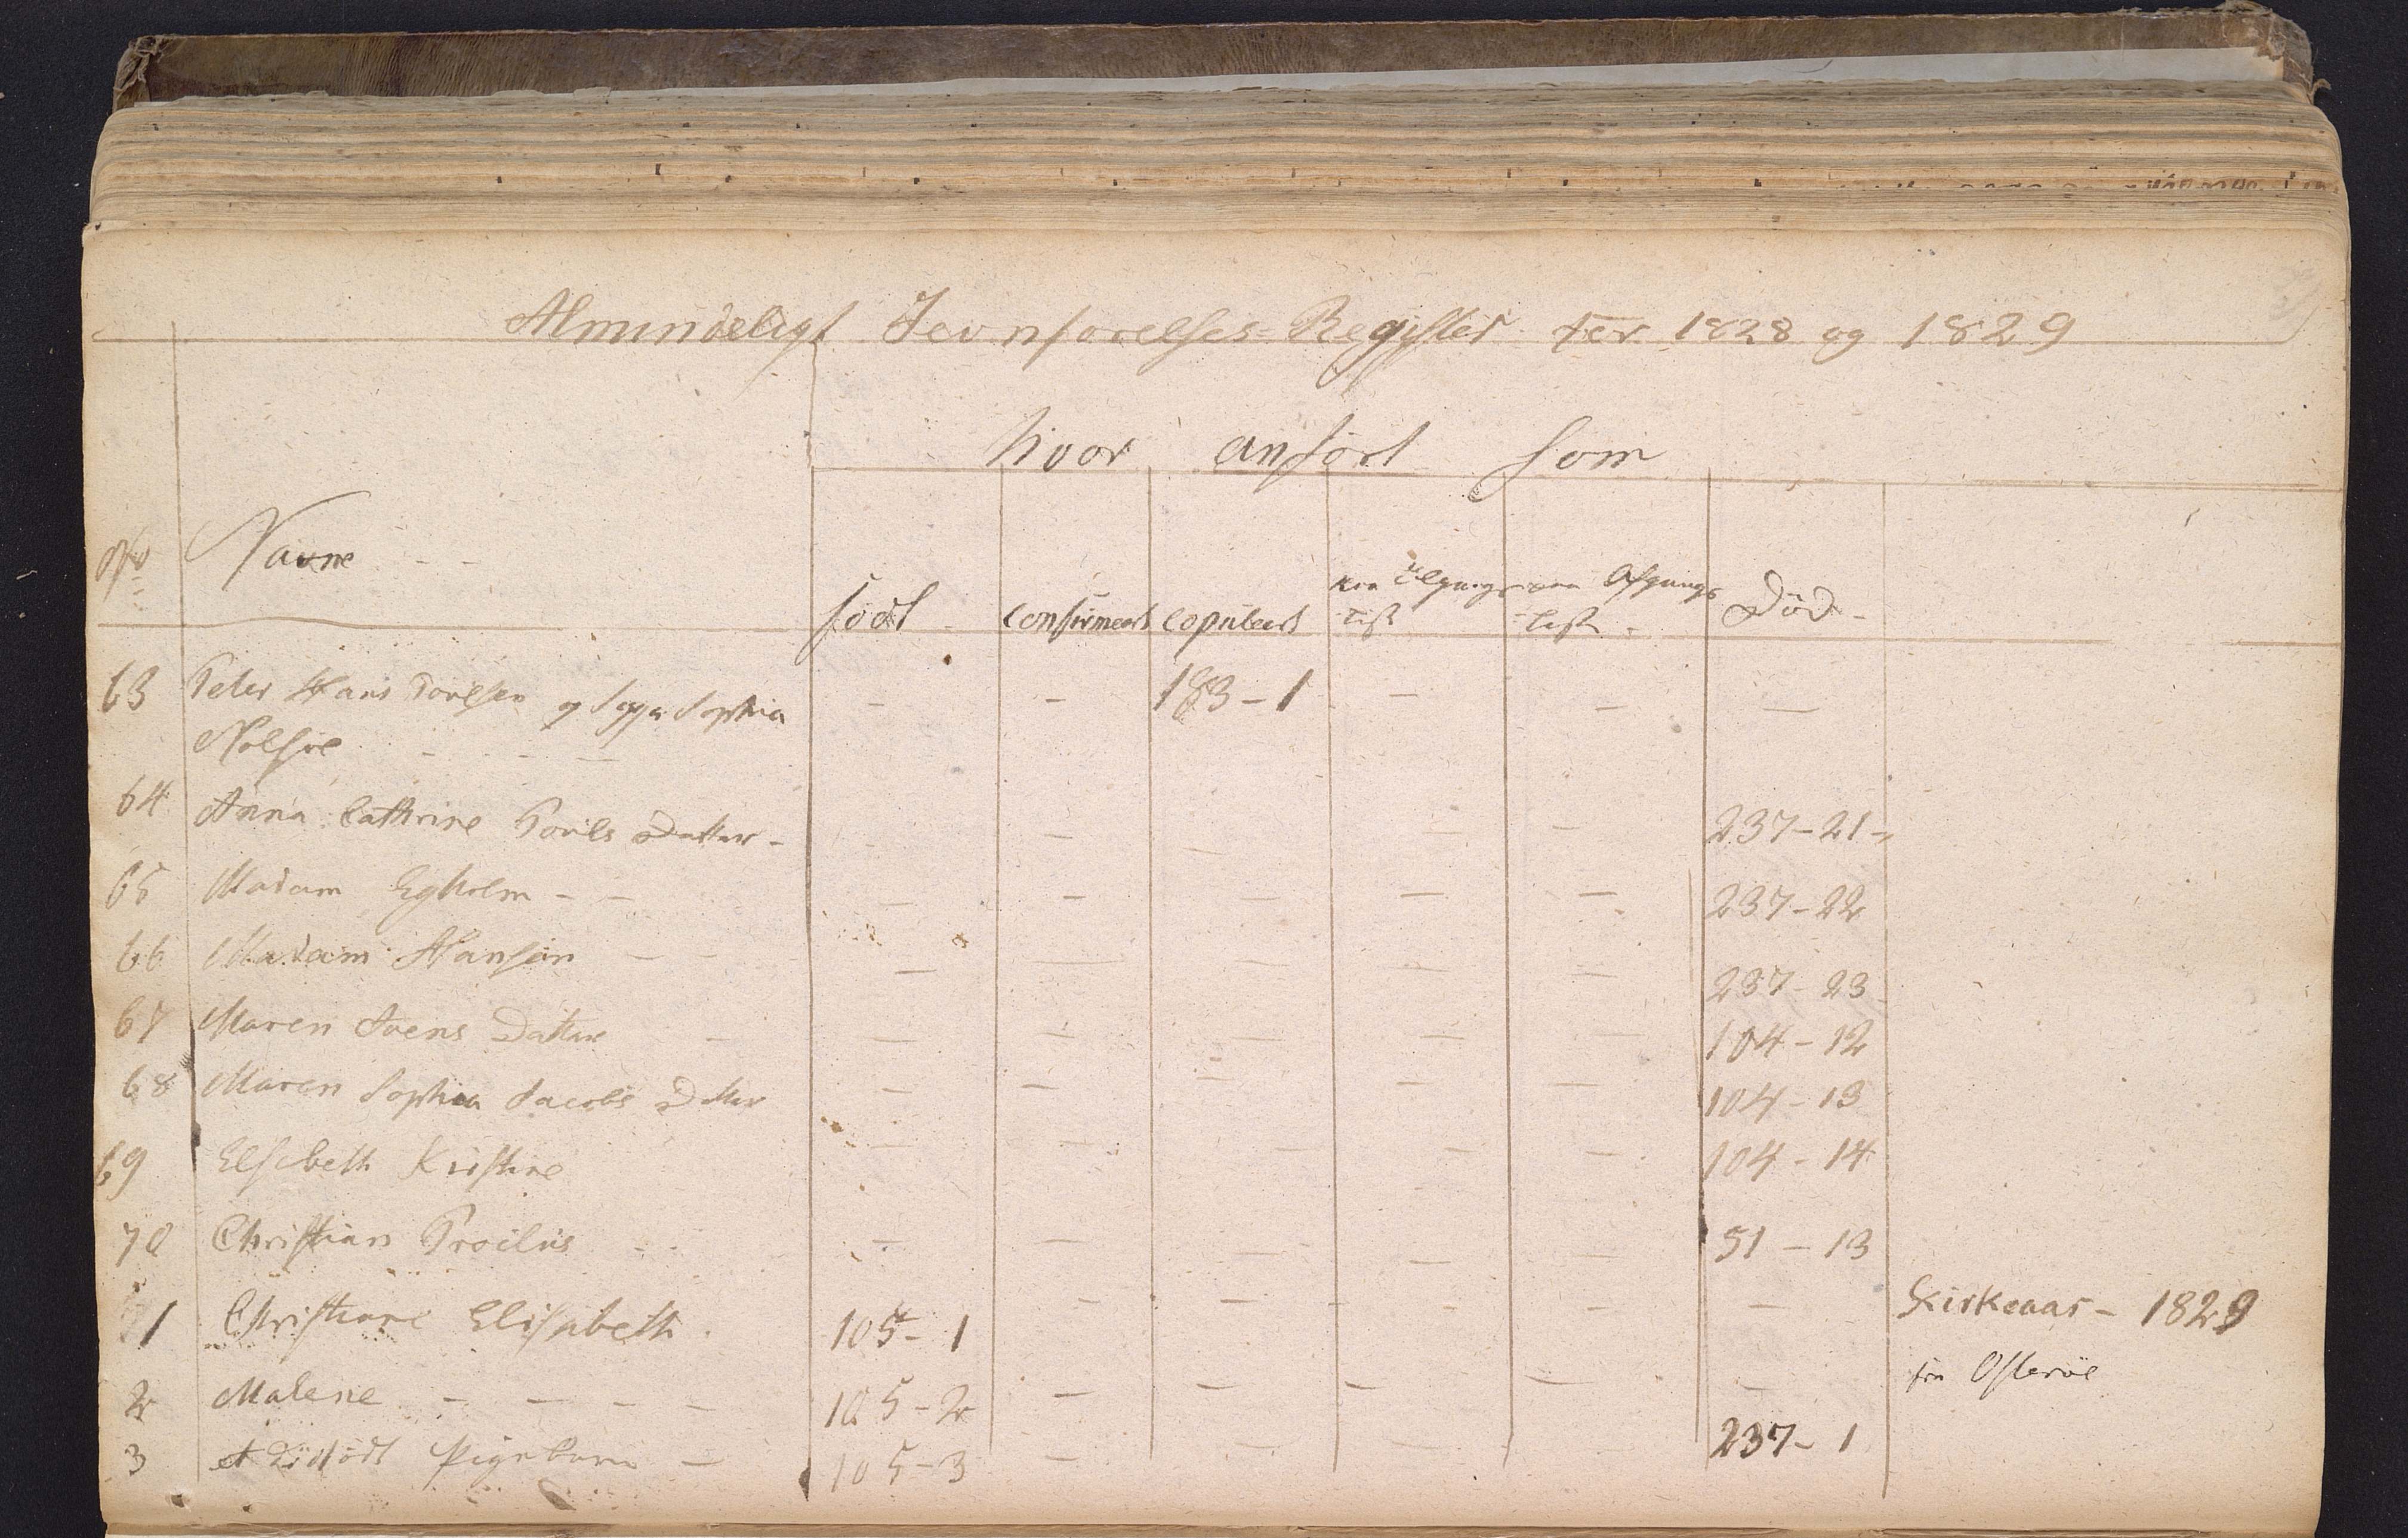 Almindeligt Jevnførelses-Register for 1828 og 1829
hvor anført som
No Navne - -
født confirmeert copuleert Død -
63 Peter Hans Povelsen og Sophia - - 183-1 - - -
Nolsøe - - -
64 Anna Cathrine Povels Datter - - - - - - 237-21-
65 Madam Egholm - - - - - - - 237-22
66 Madam Hansen - - - - - - - 237-23
67 Maren Joens Datter - - - - - - 104-12
68 Maren Sophia Jacobs Datter - - - - - 104-13
69 Elsebeth Kirstine - - - - - 104-14
70 Christian Proilius - - - - - - 51-13
1 Christiane Elisabeth 105-1 - - - - - Kirkeaar - 1829
2 Malene - - - - 105-2 - - - - - fra Østerøe
3 et dødfødt Pigebarn - 105-3 - - - - 237-1